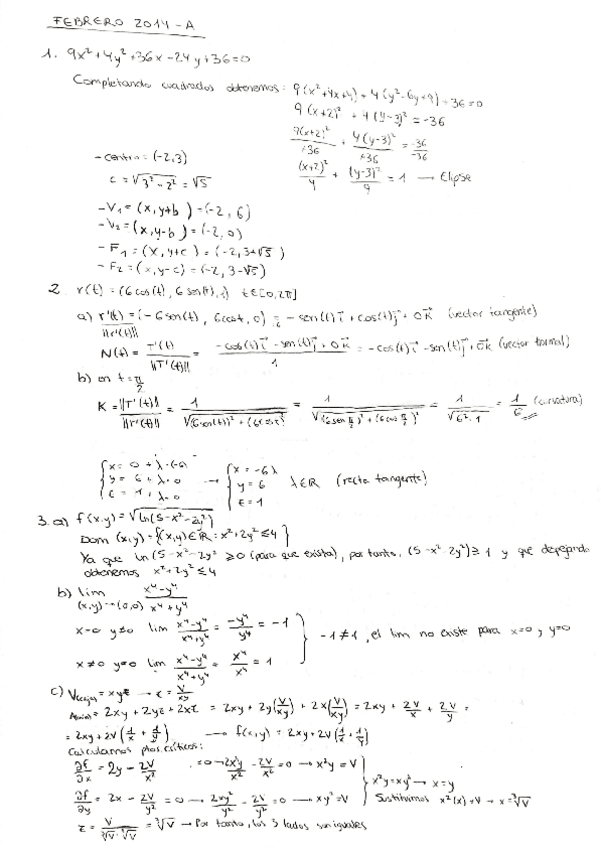 FEBRERO 2014-A
1. 9x²+4y²+36x-24y+36=0
Completando cuadrados obtenemos: 9(x²+4x+4)+4(y²-6y+9)-36=0
9(x+2)²+4(y-3)²=-36
9(x+2)²/+36 + 4(y-3)²/+36 = -36/-36
- centro=(-2,3)
(x+2)²/4 + (y-3)²/9 = 1 → Elipse
c=√3²-2² = √5
- V₁=(x,y+b)=(-2,6)
- V₂=(x,y-b)=(-2,0)
- F₁=(x,y+c)=(-2,3+√5)
- F₂=(x,y-c)=(-2,3-√5)
2. r(t)=(6cos(t), 6sen(t),1) t∈[0,2π]
a) r'(t)/||r'(t)|| = (-6sen(t), 6cost, 0) = -sen(t)i+cos(t)j+0k (vector tangente)
N(t)= T'(t)/||T'(t)|| = -cos(t)i-sen(t)j+0k/1 = -cos(t)i-sen(t)j+0k (vector normal)
b) en t=π/2
K=||T'(t)||/||r'(t)|| = 1/√(6sen(t))²+(6cos t)² = 1/√(6sen π/2)²+(6cos π/2)² = 1/√6²·1 = 1/6 (curvatura)
{x=0+λ·(-6) → {x=-6λ
y=6+λ·0 y=6 λ∈R (recta tangente)
z=1+λ·0 z=1
3. a) f(x,y)=√ln(5-x²-2y²)
Dom (x,y)={(x,y)∈R: x²+2y²≤4}
Ya que ln(5-x²-2y² ≥0 (para que exista), por tanto, (5-x²-2y²)≥1 y que despejando
obtenemos x²+2y²≤4
b) lim (x,y)→(0,0) x⁴-y⁴/x⁴+y⁴
x=0 y≠0 lim x⁴-y⁴/x⁴+y⁴ = -y⁴/y⁴ = -1
-1≠1, el lim no existe para x=0, y=0
x≠0 y=0 lim x⁴-y⁴/x⁴+y⁴ = x⁴/x⁴ = 1
c) V=xyz → z=V/xy
= 2xy+2yz+2xz = 2xy+2y(V/xy)+2x(V/xy) = 2xy+2V/x+2V/y =
= 2xy+2V(1/x+1/y) → f(x,y)=2xy+2V(1/x+1/y)
Calculamos ptos. críticos:
∂f/∂x = 2y-2V/x² =0→2x²y/x²-2V/x²=0→x²y=V
x²y=xy²→x=y
∂f/∂y = 2x-2V/y² =0→2xy²/y²-2V/y²=0→xy²=V
Sustituimos x²(x)=V→x=³√V
z=V/³√V·³√V = ³√V → Por tanto, los 3 lados son iguales